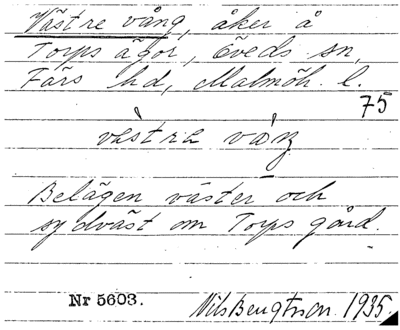 Västre vång, åker å
Torps ägor, Öveds sn,
Färs hd, Malmöh. l.
75
västra våŋ
Belägen väster och
sydväst om Torps gård.
Nr 5603.
Nils Bengtsson. 1935.